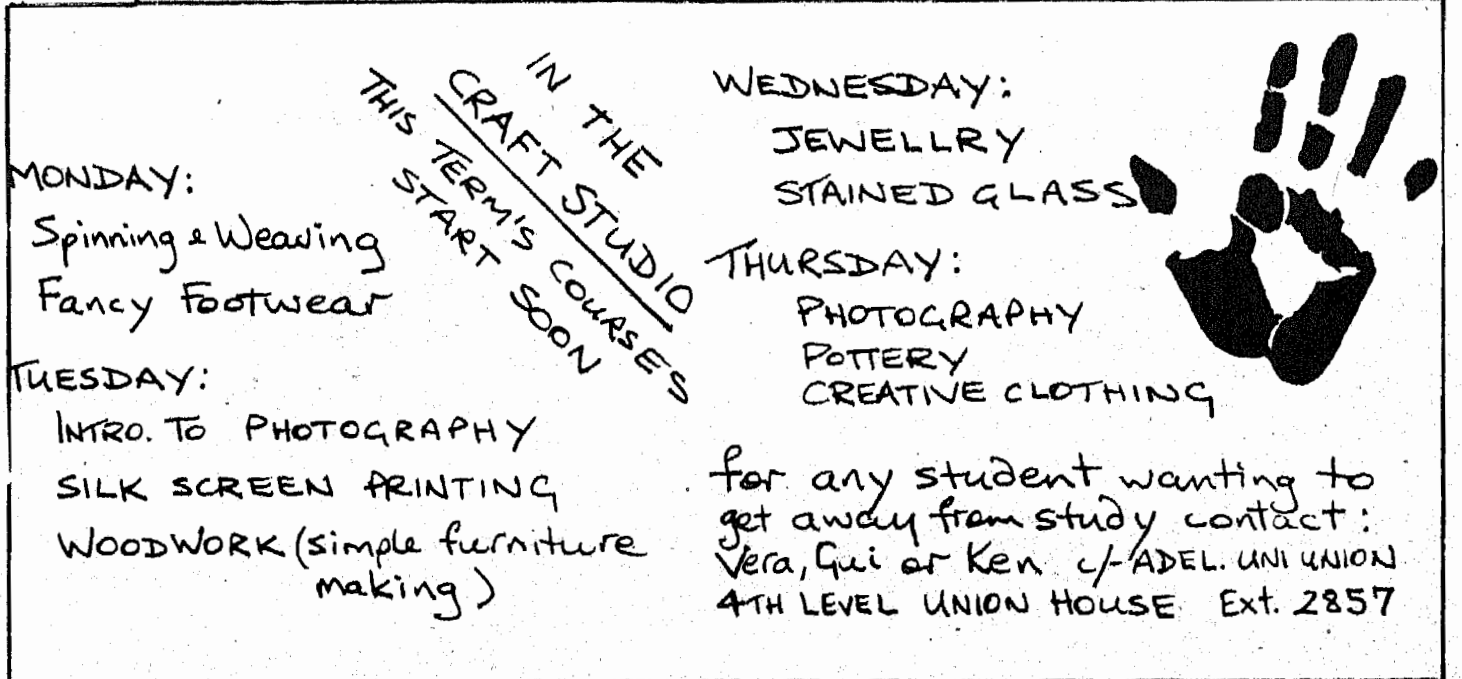 IN THE
CRAFT STUDIO
THIS TERM'S COURSES
START SOON
MONDAY:
Spinning & Weaving
Fancy Footwear
TUESDAY:
INTRO. TO PHOTOGRAPHY
SILK SCREEN PRINTING
WOODWORK (simple furniture
making)
WEDNESDAY:
JEWELLRY
STAINED GLASS
THURSDAY:
PHOTOGRAPHY
POTTERY
CREATIVE CLOTHING
for any student wanting to
get away from study contact:
Vera, Gui or Ken c/- ADEL. UNI UNION
4TH LEVEL UNION HOUSE Ext. 2857